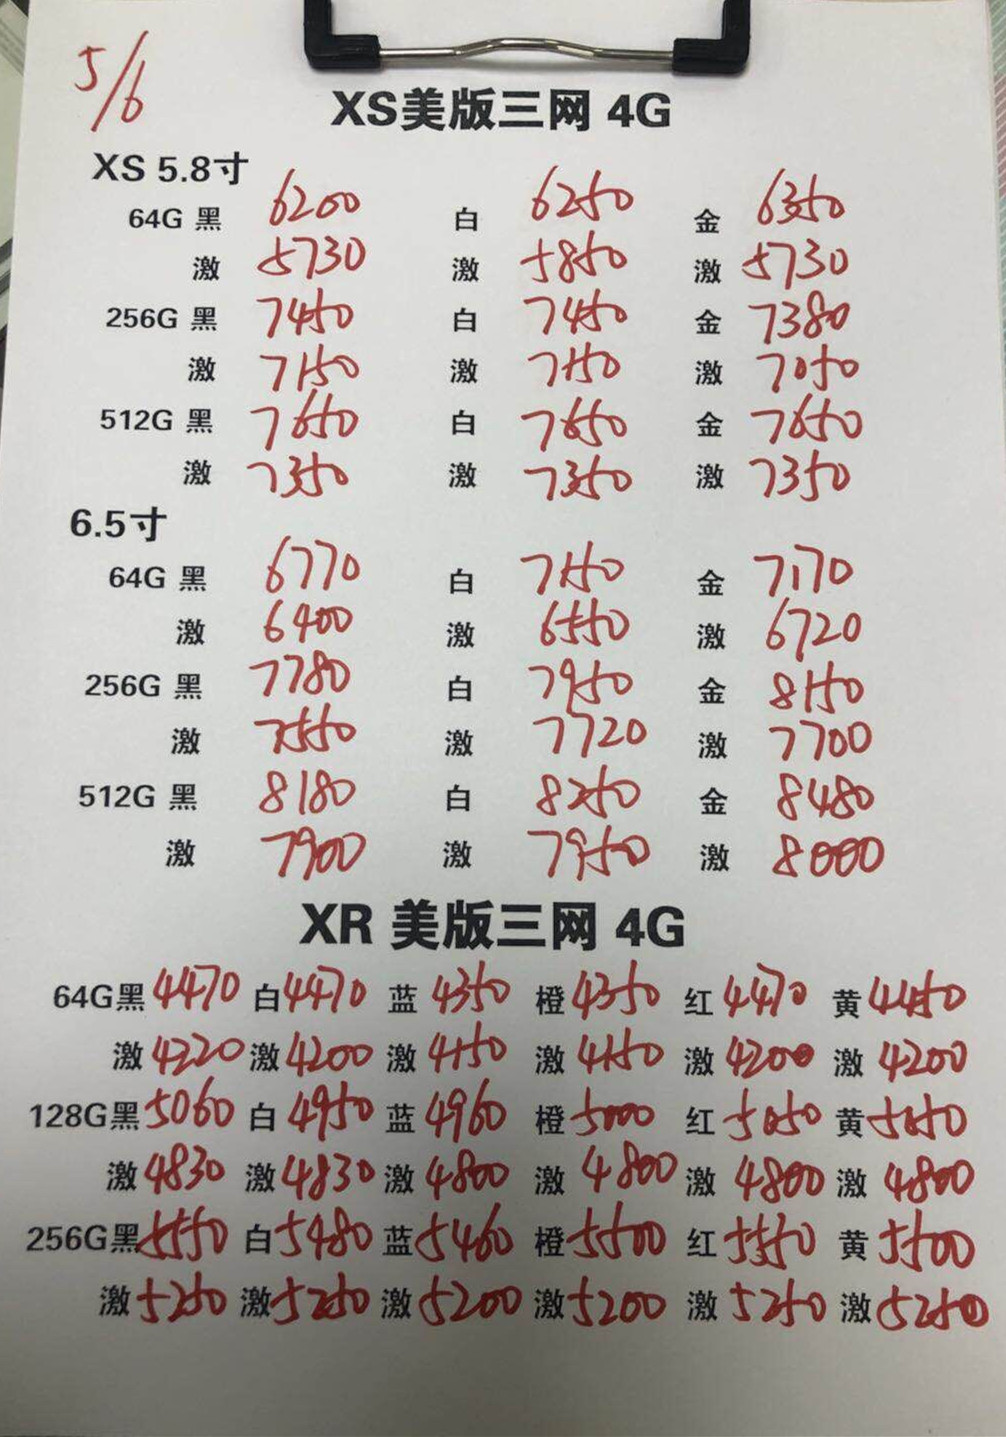 5/6
XS美版三网 4G
XS 5.8寸
64G 黑 6200 白 6250 金 6350
激 5730 激 5850 激 5730
256G 黑 7450 白 7450 金 7380
激 7150 激 7150 激 7050
512G 黑 7650 白 7650 金 7650
激 7350 激 7350 激 7350
6.5寸
64G 黑 6770 白 7150 金 7170
激 6400 激 6550 激 6720
256G 黑 7780 白 7950 金 8150
激 7550 激 7720 激 7700
512G 黑 8180 白 8250 金 8480
激 7900 激 7950 激 8000
XR 美版三网 4G
64G黑 4470 白 4470 蓝 4350 橙 4350 红 4470 黄 4450
激 4220 激 4200 激 4150 激 4150 激 4200 激 4200
128G黑 5060 白 4950 蓝 4960 橙 5000 红 5050 黄 5050
激 4830 激 4830 激 4800 激 4800 激 4800 激 4800
256G黑 5550 白 5480 蓝 5460 橙 5500 红 5550 黄 5500
激 5250 激 5250 激 5200 激 5200 激 5250 激 5250